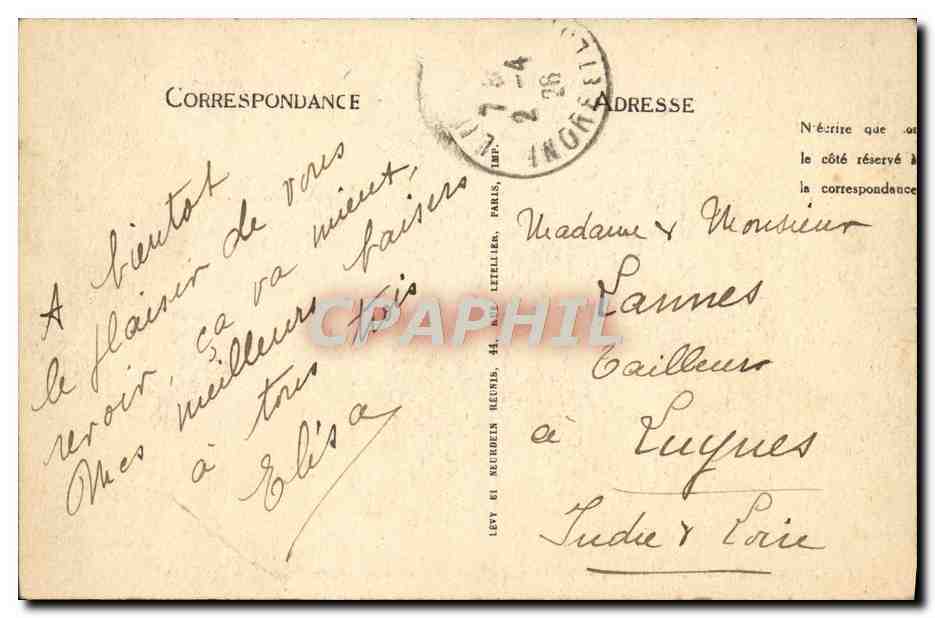 CORRESPONDANCE
A bientot
le plaisir de vous
revoir, ça va mieux,
Mes meilleurs baisers
à tous trois
Elisa
7
2-4
26
INDRE
LÉVY ET NEURDEIN RÉUNIS, 44, RUE LETELLIER, PARIS, IMP.
ADRESSE
N'écrire que
le côté réservé à
la correspondance
Madame & Monsieur
Lannes
Tailleurs
à Luynes
Indre & Loire
CPAPHIL